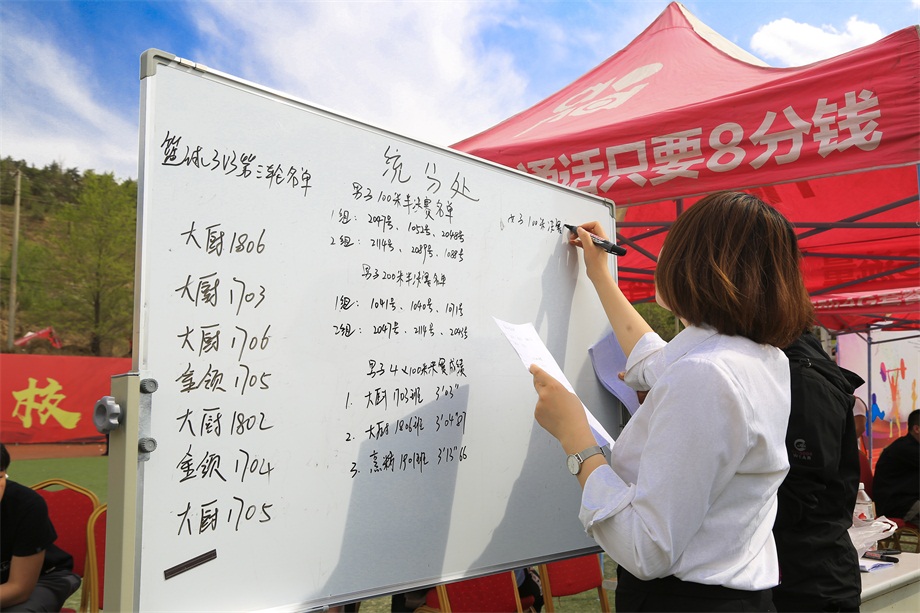 篮球3V3第三轮名单
大厨1806
大厨1703
大厨1706
金领1705
大厨1802
金领1704
大厨1705
统分处
男子100米半决赛名单
1组: 2047号、1052号、2048号
2组: 2114号、2089号、1088号
男子200米半决赛名单
1组: 1041号、1040号、1071号
2组: 2047号、2114号、2041号
男子4×100米决赛成绩
1. 大厨1703班 3'03"
2. 大厨1806班 3'04"87
3. 烹精1901班 3'13"66
女子100米决赛
通话只要8分钱
校